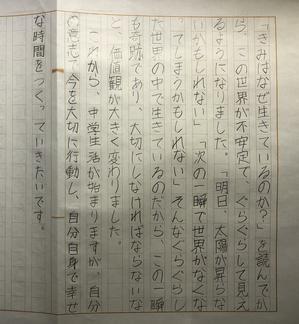 「きみはなぜ生きているのか？」を読んでか
ら、この世界が不安定で、ぐらぐらして見え
るようになりました。「明日、太陽が昇らな
いかもしれない」「次の一瞬で世界がなくな
ってしまうかもしれない」そんなぐらぐらし
た世界の中で生きているのだから、この一瞬
も奇跡であり、大切にしなければならないな
と、価値観が大きく変わりました。
これから、中学生活が始まりますが、自分
の意志で今を大切に行動し、自分自身で幸せ
な時間をつくっていきたいです。